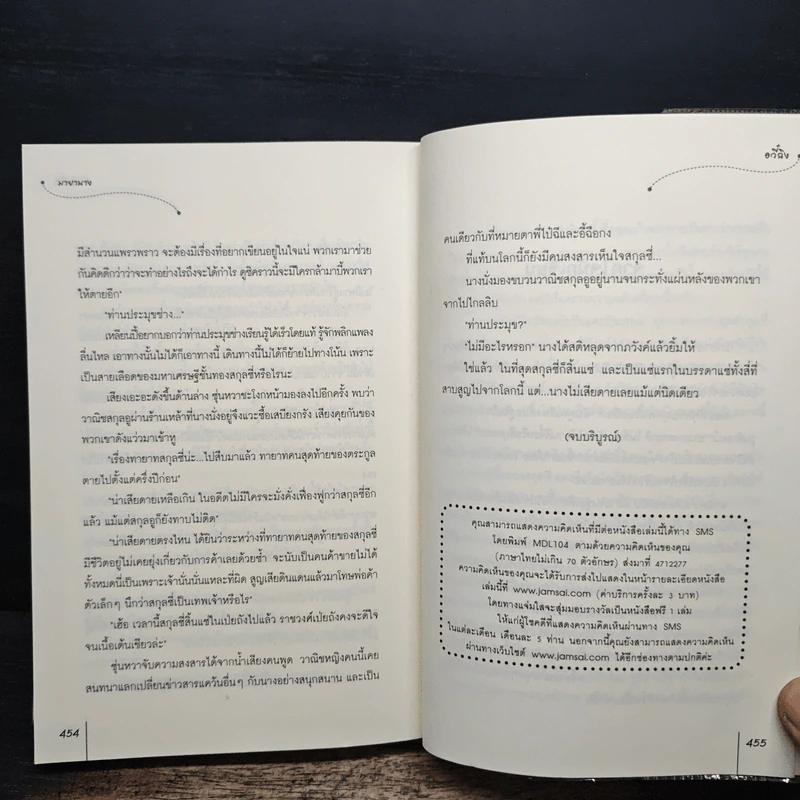 มายามาง
มีสำนวนแพรวพราว จะต้องมีเรื่องที่อยากเขียนอยู่ในใจแน่ พวกเรามาช่วย
กันคิดดีกว่าว่าจะทำอย่างไรถึงจะได้กำไร ดูซิคราวนี้จะมีใครกล้ามาบี้พวกเรา
ให้ตายอีก"
"ท่านประมุขช่าง..."
เหลียนปี้อยากบอกว่าท่านประมุขช่างเรียนรู้ได้เร็วโดยแท้ รู้จักพลิกแพลง
ลื่นไหล เอาทางนั้นไม่ได้ก็เอาทางนี้ เดินทางนี้ไม่ได้ก็ย้ายไปทางโน้น เพราะ
เป็นสายเลือดของมหาเศรษฐีชั้นทองสกุลซี่หรือไรนะ
เสียงเอะอะดังขึ้นด้านล่าง ซุ่นหวาชะโงกหน้ามองลงไปอีกครั้ง พบว่า
วาณิชสกุลอูผ่านร้านเหล้าที่นางนั่งอยู่จึงแวะซื้อเสบียงกรัง เสียงคุยกันของ
พวกเขาดังแว่วมาเข้าหู
"เรื่องทายาทสกุลซี่น่ะ...ไปสืบมาแล้ว ทายาทคนสุดท้ายของตระกูล
ตายไปตั้งแต่ครึ่งปีก่อน"
"น่าเสียดายเหลือเกิน ในอดีตไม่มีใครจะมั่งคั่งเฟื่องฟูกว่าสกุลซี่อีก
แล้ว แม้แต่สกุลอูก็ยังทาบไม่ติด"
"น่าเสียดายตรงไหน ได้ยินว่าระหว่างที่ทายาทคนสุดท้ายของสกุลซี่
มีชีวิตอยู่ไม่เคยยุ่งเกี่ยวกับการค้าเลยด้วยซ้ำ จะนับเป็นคนค้าขายไม่ได้
ทั้งหมดนี่เป็นเพราะเจ้านั่นนั่นแหละที่ผิด สูญเสียดินแดนแล้วมาโทษพ่อค้า
ตัวเล็กๆ นึกว่าสกุลซี่เป็นเทพเจ้าหรือไร"
"เฮ้อ เวลานี้สกุลซี่สิ้นแซ่ในเป่ยถังไปแล้ว ราชวงศ์เป่ยถังคงจะดีใจ
จนเนื้อเต้นเชียวล่ะ"
ซุ่นหวาจับความสงสารได้จากน้ำเสียงคนพูด วาณิชหญิงคนนี้เคย
สนทนาแลกเปลี่ยนข่าวสารแคว้นอื่นๆ กับนางอย่างสนุกสนาน และเป็น
454
อวี๋ฉิง
คนเดียวกับที่หมายตาพี่ไป๋ฉีและอี้ฉือกง
ที่แท้บนโลกนี้ก็ยังมีคนสงสารเห็นใจสกุลซี่...
นางนั่งมองขบวนวาณิชสกุลอูอยู่นานจนกระทั่งแผ่นหลังของพวกเขา
จากไปไกลลิบ
"ท่านประมุข?"
"ไม่มีอะไรหรอก" นางได้สติหลุดจากภวังค์แล้วยิ้มให้
ใช่แล้ว ในที่สุดสกุลซี่ก็สิ้นแซ่ และเป็นแซ่แรกในบรรดาแซ่ทั้งสี่ที่
สาบสูญไปจากโลกนี้ แต่...นางไม่เสียดายเลยแม้แต่นิดเดียว
(จบบริบูรณ์)
คุณสามารถแสดงความคิดเห็นที่มีต่อหนังสือเล่มนี้ได้ทาง SMS
โดยพิมพ์ MDL104 ตามด้วยความคิดเห็นของคุณ
(ภาษาไทยไม่เกิน 70 ตัวอักษร) ส่งมาที่ 4712277
ความคิดเห็นของคุณจะได้รับการส่งไปแสดงในหน้ารายละเอียดหนังสือ
เล่มนี้ที่ www.jamsai.com (ค่าบริการครั้งละ 3 บาท)
โดยทางแจ่มใสจะสุ่มมอบรางวัลเป็นหนังสือฟรี 1 เล่ม
ให้แก่ผู้โชคดีที่แสดงความคิดเห็นผ่านทาง SMS
ในแต่ละเดือน เดือนละ 5 ท่าน นอกจากนี้คุณยังสามารถแสดงความคิดเห็น
ผ่านทางเว็บไซต์ www.jamsai.com ได้อีกช่องทางตามปกติค่ะ
455